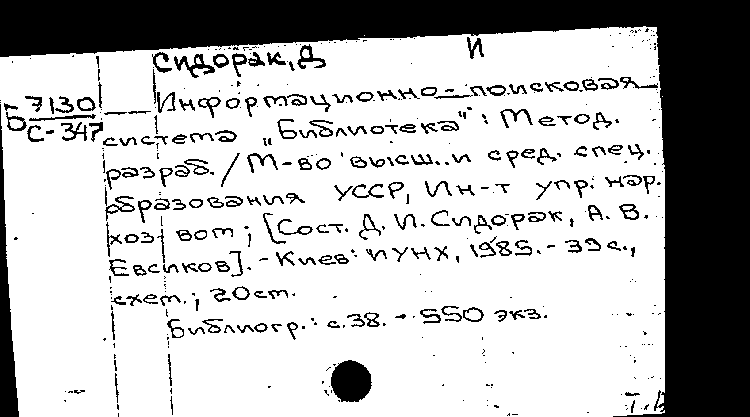 Сидорак, Д И
Б 7130
С-347
Информационно-поисковая
система „Библиотека": Метод.
разраб. / М-во высш. и сред. спец.
образования УССР, Ин-т упр. нар.
хоз-вом; [Сост. Д. И. Сидорак, А. В.
Евсиков]. - Киев: ИУНХ, 1985. - 39 с.,
схем.; 20 см.
Библиогр.: с. 38. - 550 экз.